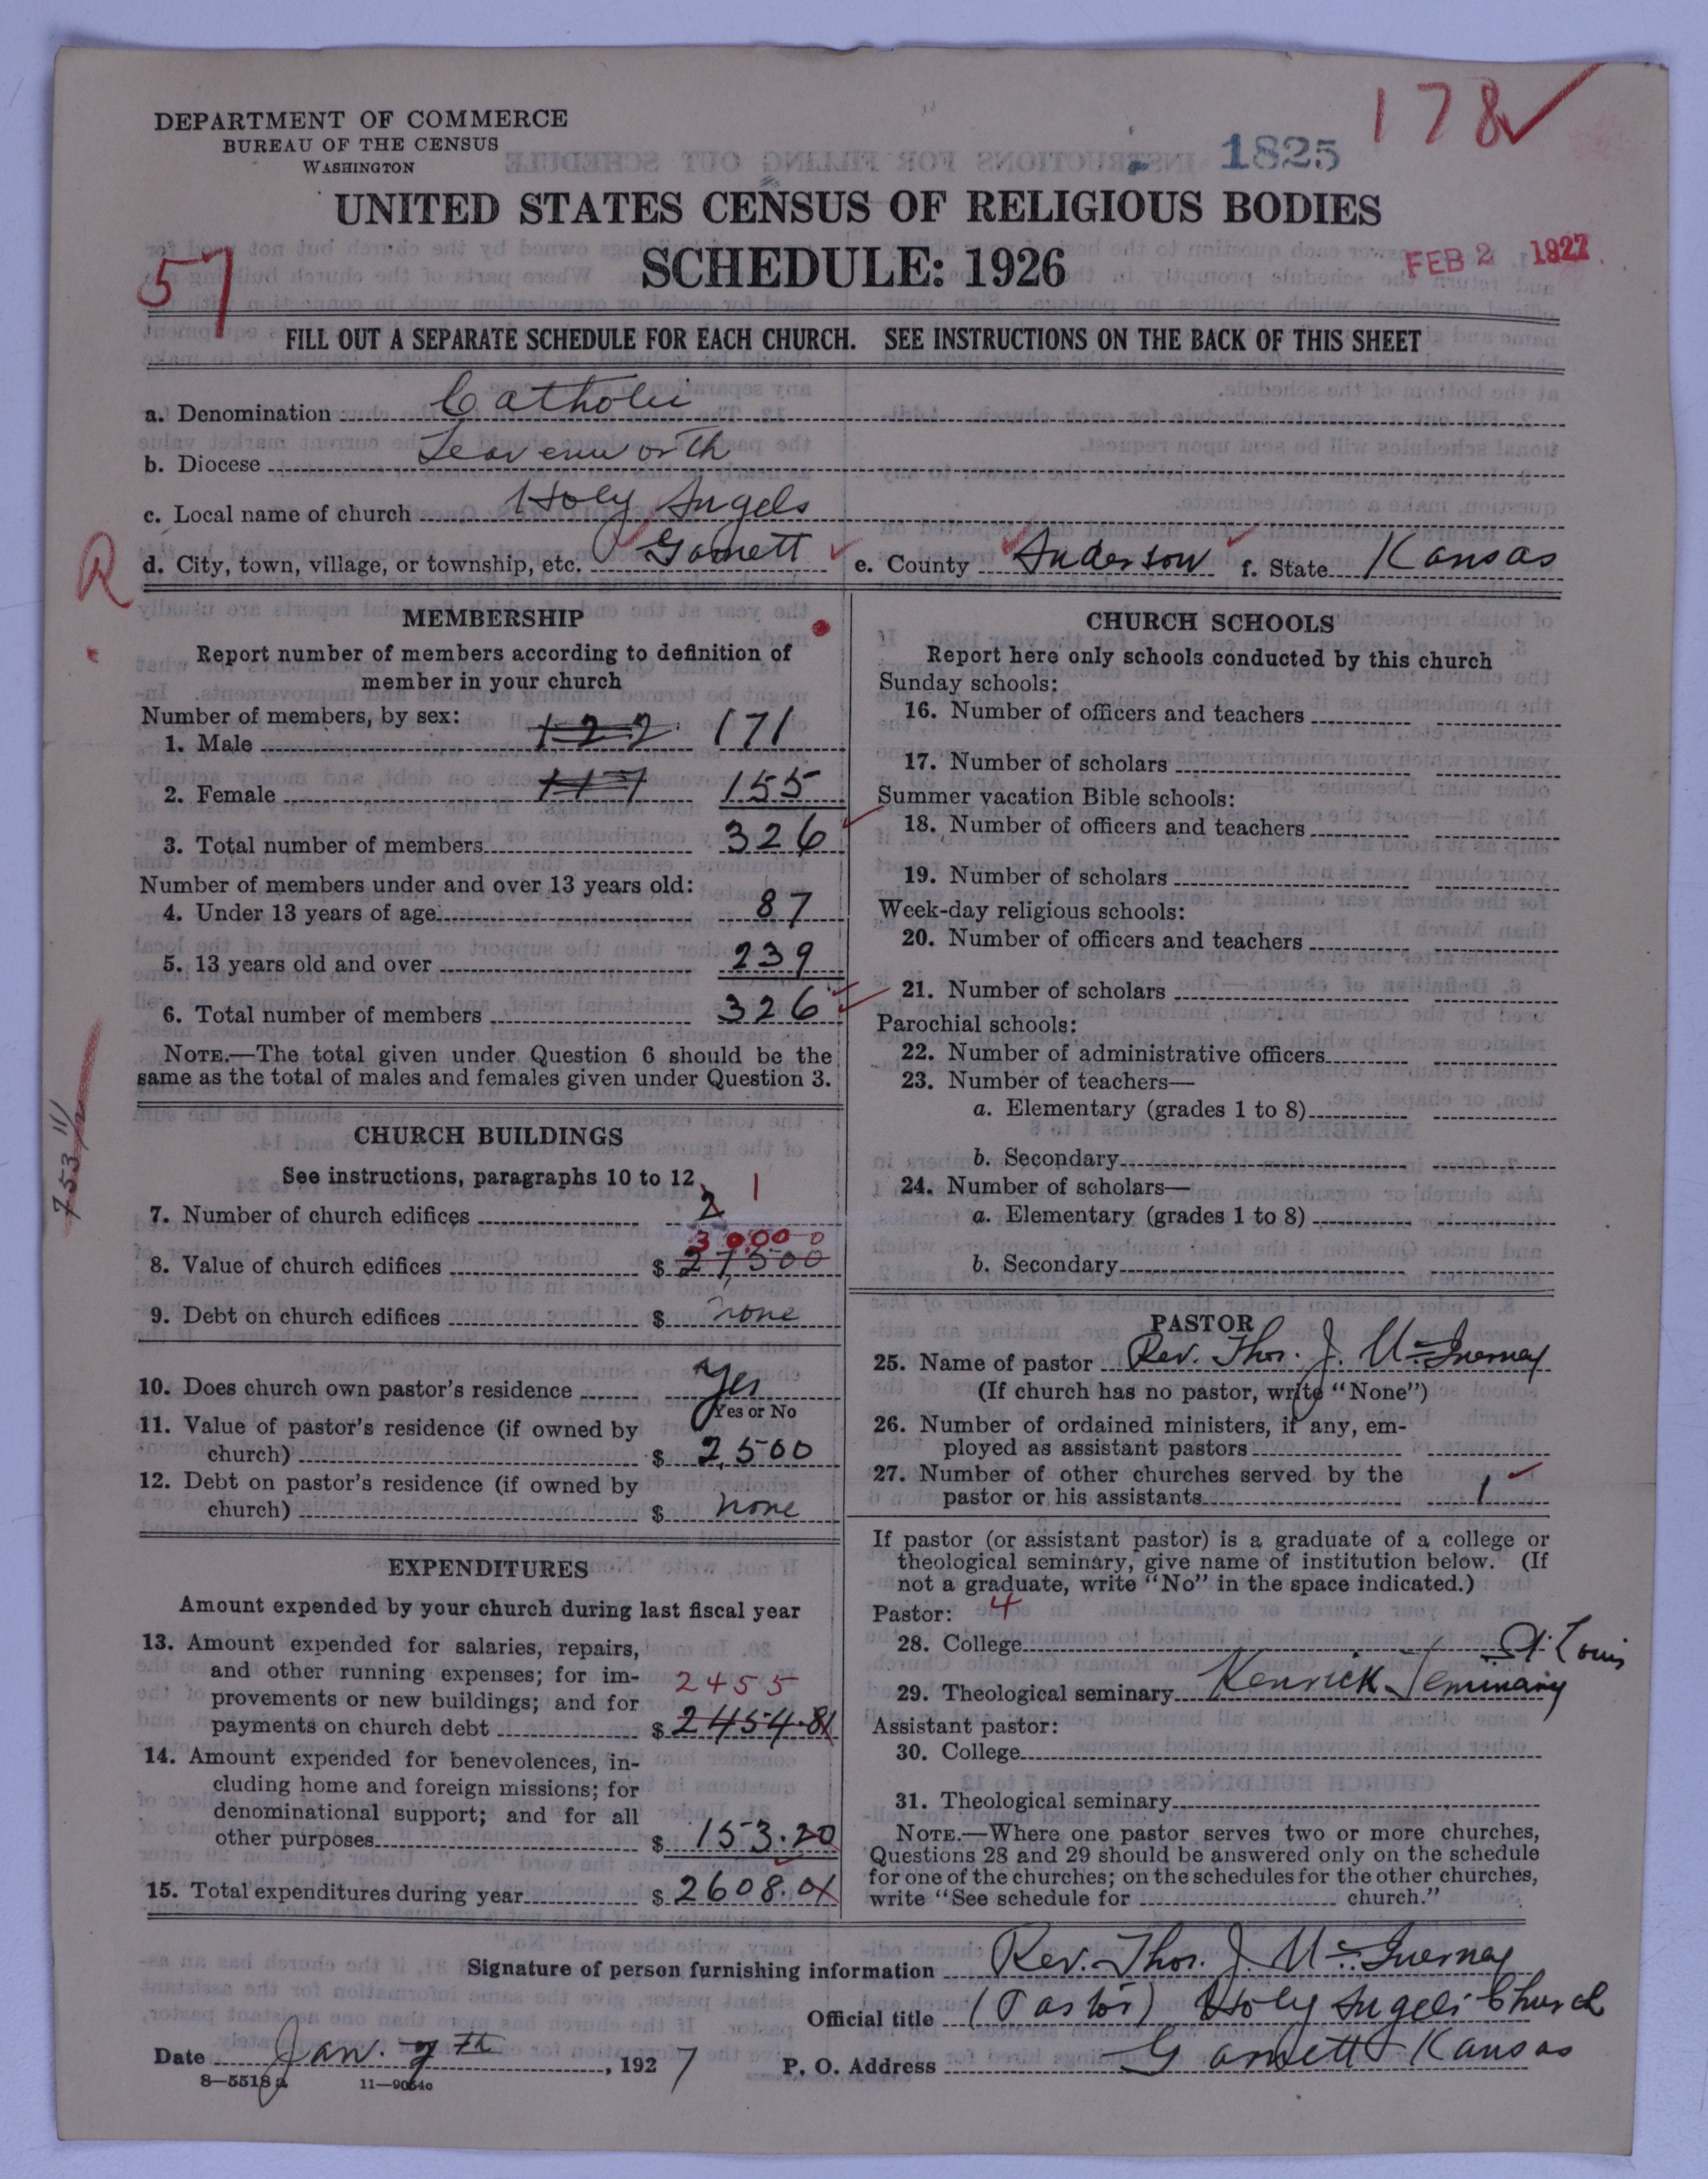 DEPARTMENT OF COMMERCE
BUREAU OF THE CENSUS
WASHINGTON
1825
178
UNITED STATES CENSUS OF RELIGIOUS BODIES
SCHEDULE: 1926
57
FEB 2 1927
FILL OUT A SEPARATE SCHEDULE FOR EACH CHURCH. SEE INSTRUCTIONS ON THE BACK OF THIS SHEET
a. Denomination Catholic
b. Diocese Leavenworth
c. Local name of church Holy Angels
R
d. City, town, village, or township, etc. Garnett e. County Anderson f. State Kansas
MEMBERSHIP
Report number of members according to definition of
member in your church
Number of members, by sex:
1. Male 122 171
2. Female 117 155
3. Total number of members 326
Number of members under and over 13 years old:
4. Under 13 years of age 87
5. 13 years old and over 239
6. Total number of members 326
NOTE.—The total given under Question 6 should be the
same as the total of males and females given under Question 3.
753 11/2
CHURCH BUILDINGS
See instructions, paragraphs 10 to 12
7. Number of church edifices 2 1
30000
8. Value of church edifices $ 27,500
9. Debt on church edifices $ none
10. Does church own pastor's residence Yes
Yes or No
11. Value of pastor's residence (if owned by
church) $ 2,500
12. Debt on pastor's residence (if owned by
church) $ none
EXPENDITURES
Amount expended by your church during last fiscal year
13. Amount expended for salaries, repairs,
and other running expenses; for im-
provements or new buildings; and for
2455
payments on church debt $ 2454.81
14. Amount expended for benevolences, in-
cluding home and foreign missions; for
denominational support; and for all
other purposes $ 153.20
15. Total expenditures during year $ 2608.01
CHURCH SCHOOLS
Report here only schools conducted by this church
Sunday schools:
16. Number of officers and teachers
17. Number of scholars
Summer vacation Bible schools:
18. Number of officers and teachers
19. Number of scholars
Week-day religious schools:
20. Number of officers and teachers
21. Number of scholars
Parochial schools:
22. Number of administrative officers
23. Number of teachers—
a. Elementary (grades 1 to 8)
b. Secondary
24. Number of scholars—
a. Elementary (grades 1 to 8)
b. Secondary
PASTOR
25. Name of pastor Rev. Thos. J. McInerney
(If church has no pastor, write "None")
26. Number of ordained ministers, if any, em-
ployed as assistant pastors
27. Number of other churches served by the
pastor or his assistants 1
If pastor (or assistant pastor) is a graduate of a college or
theological seminary, give name of institution below. (If
not a graduate, write "No" in the space indicated.)
Pastor: 4
28. College St. Louis
29. Theological seminary Kenrick Seminary
Assistant pastor:
30. College
31. Theological seminary
NOTE.—Where one pastor serves two or more churches,
Questions 28 and 29 should be answered only on the schedule
for one of the churches; on the schedules for the other churches,
write "See schedule for church."
Signature of person furnishing information Rev. Thos. J. McInerney
Official title (Pastor) Holy Angels Church
Date Jan. 7th, 1927 P. O. Address Garnett Kansas
8—5518a 11—9054o